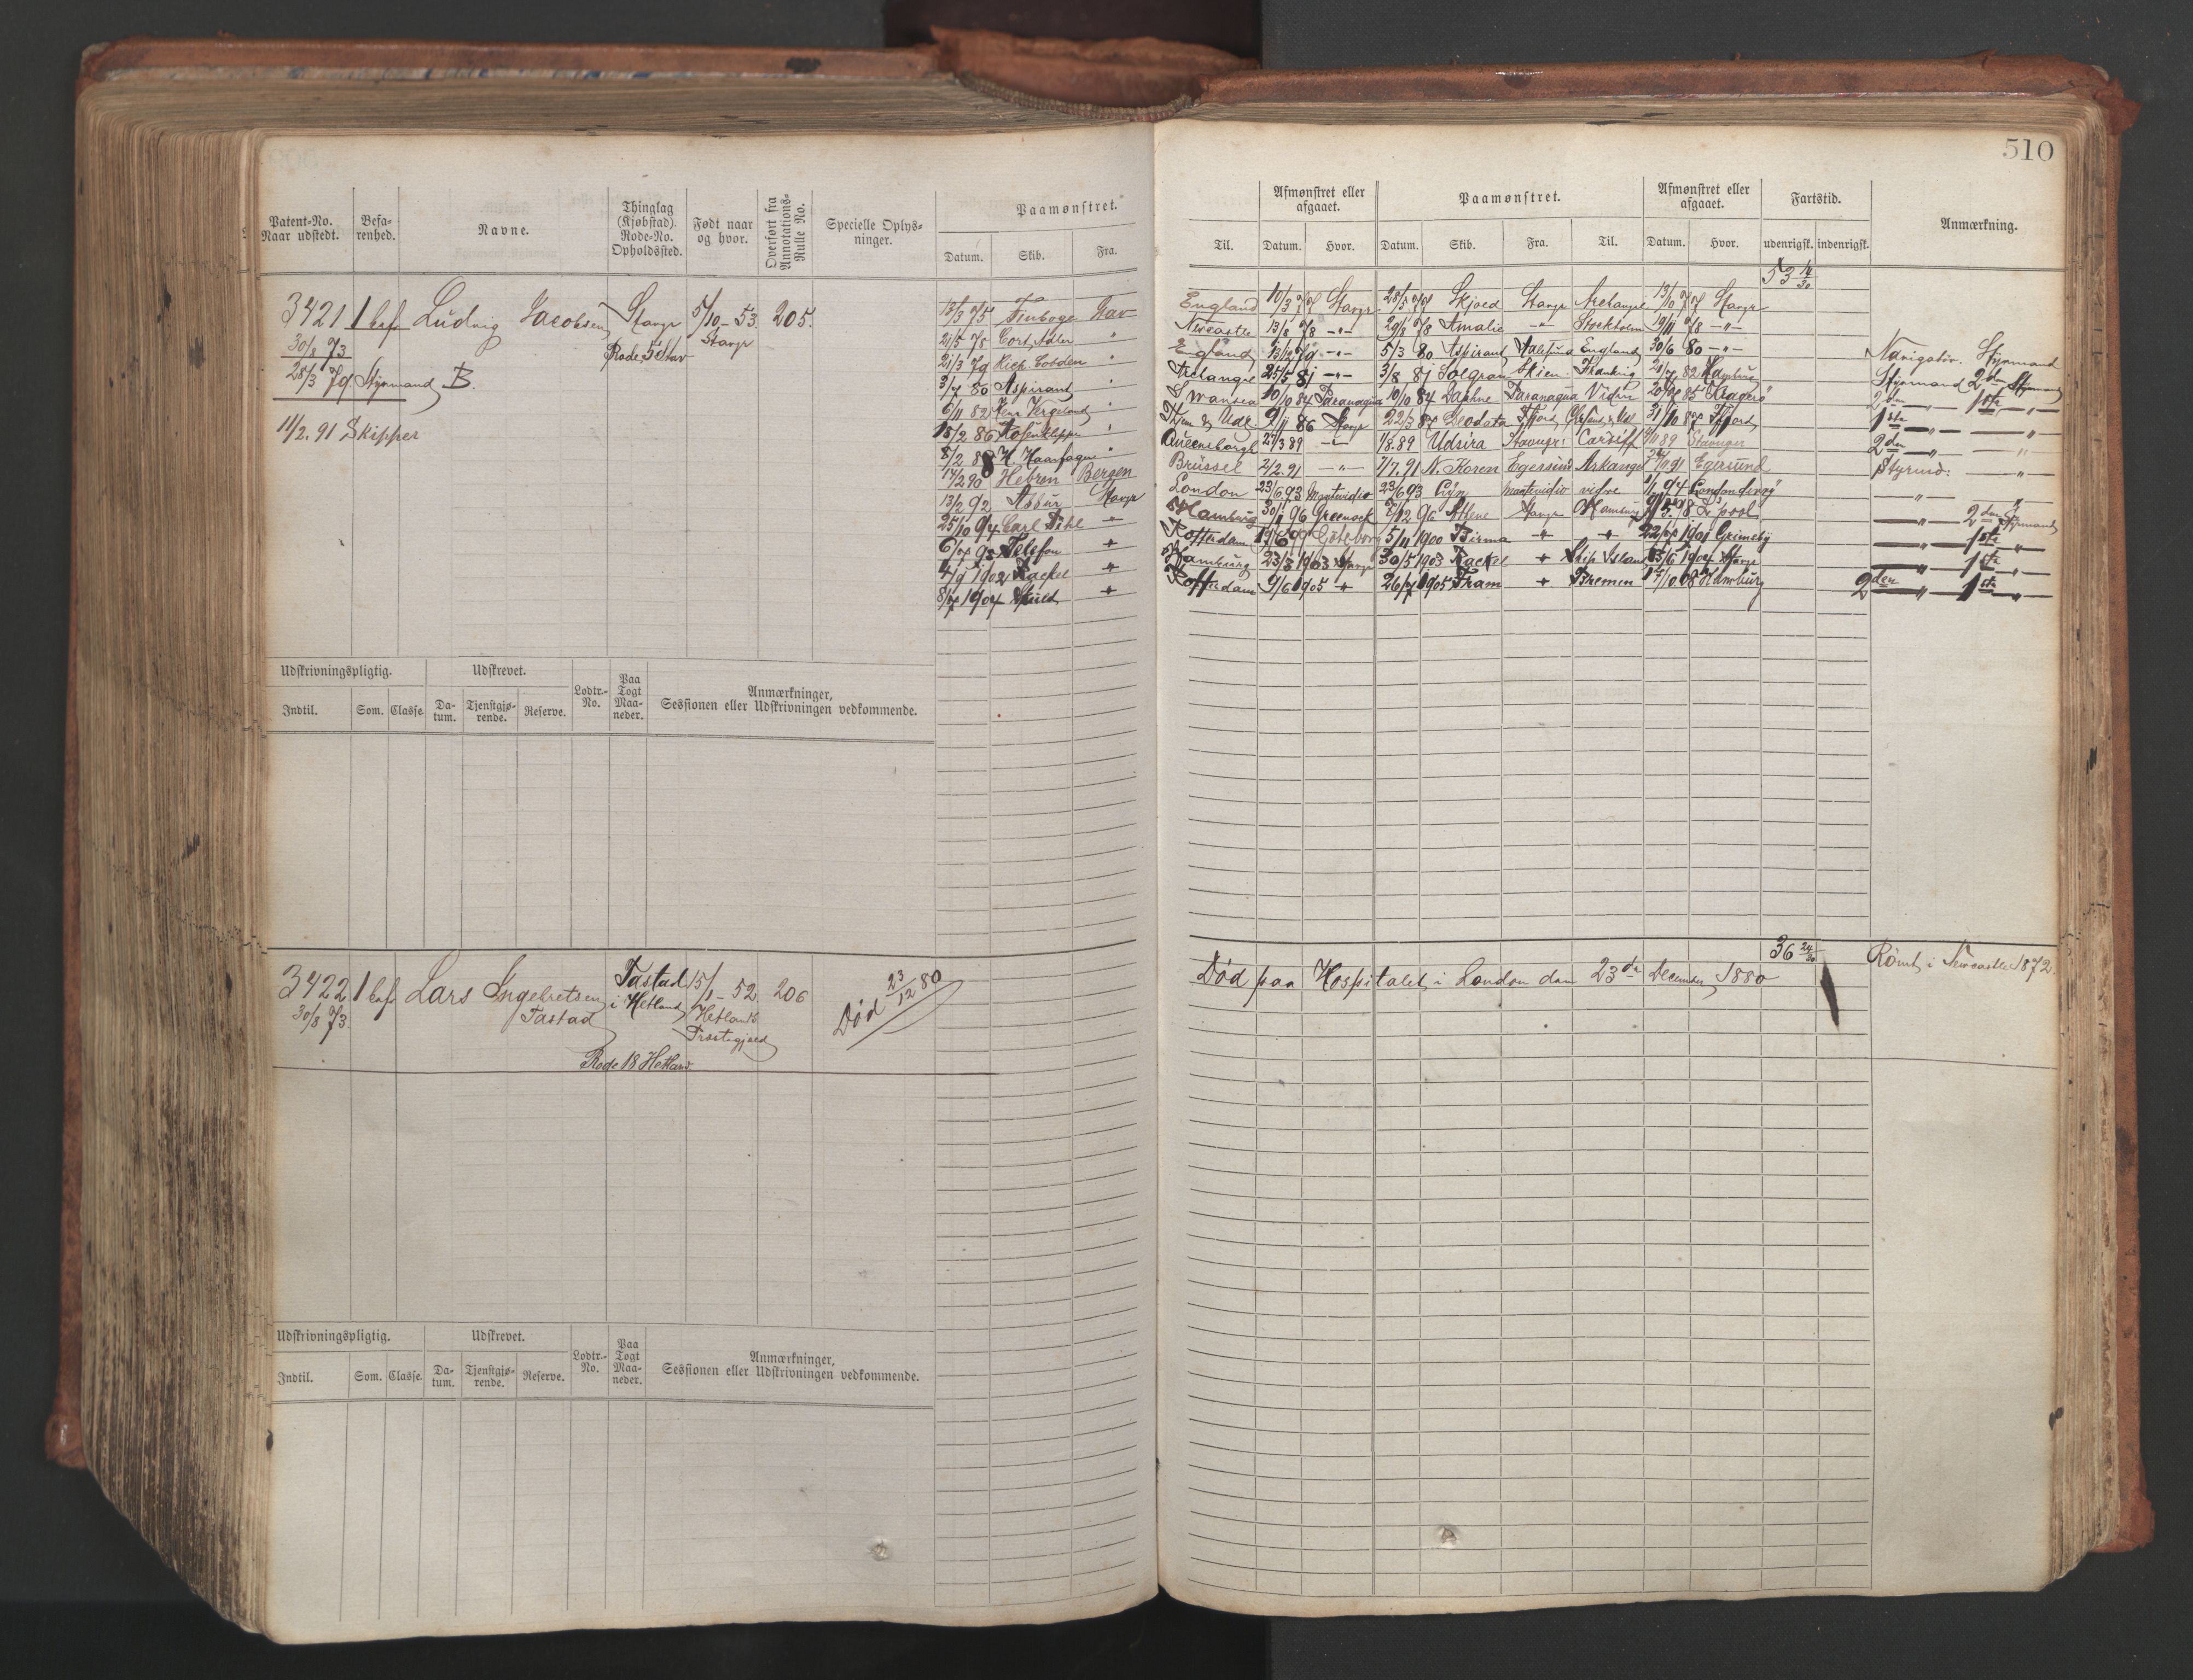 510
Patent-No. Naar udstedt.
Befarenhed.
Navne.
Thinglag (Kjøbstad). Rode-No. Opholdssted.
Født naar og hvor.
Overført fra Annotations-Rulle No.
Specielle Oplysninger.
Paamønstret.
Datum. Skib. Fra.
3421 1 bef Ludvig Jacobsen Stavgr 5/10-53. 205.
Stavgr
30/8 73
Rode 5 Stav
28/3 79 Styrmand B.
11/2. 91 Skipper
13/3 75 Finboge Stav
21/5 78 Cort Adler "
21/3 79 Rich. Cobden "
3/7 80 Aspirant "
6/11 82 Henr Vergeland "
15/2 86 "
8/2 88 H. Haarfager "
17/2 90 Hebron Bergen
13/2 92 Assur Stavgr
25/10 94 Carl Pihl "
Telefon "
4/9 1902 Rachel "
8/7 1904 Skuld "
Udskrivningspligtig.
Udskrevet.
Lodtr.-No.
Paa Togt Maaneder.
Anmærkninger, Sessionen eller Udskrivningen vedkommende.
Indtil. Som. Classe. Datum. Tjenstgjørende. Reserve.
3422 1 bef Lars Ingebretsen Tastad 15/1-52. 206
i Hetland
30/8 73. Tastad
Hetlands
Præstegjæld
Død 23/12 80
Rode 18 Hetland
Udskrivningspligtig.
Udskrevet.
Lodtr.-No.
Paa Togt Maaneder.
Anmærkninger, Sessionen eller Udskrivningen vedkommende.
Indtil. Som. Classe. Datum. Tjenstgjørende. Reserve.
Afmønstret eller afgaaet.
Paamønstret.
Afmønstret eller afgaaet.
Fartstid.
Anmærkning.
Til. Datum. Hvor. Datum. Skib. Fra. Til. Datum. Hvor. udenrigsk. indenrigsk.
53 14/30
England 10/3 77 Stavgr 28/5 77 Skjold Stavgr Archangel 13/10 77 Stavgr
Newcastle 13/8 78 -"- 29/8 78 Amalie -"- Stockholm 19/11 78 -"-
England 13/12 79 -"- 5/3 80 Aspirant Aalesund England 30/6 80 -"- Navigatør. Styrmand
Archangel 25/5 81 -"- 3/8 81 Solgran Skien Frankrig 82 Hamburg Styrmand 2den Styrmand
Swansea 10/10 84 Paranagua 10/10 84 Daphne Paranagua Videre 85 Kragerø 2den -"- 1ste -"-
Udl. 9/11 86 Stavgr 22/3 87 Geodata 31/10 87 1ste -"- -"-
Queensborgh 27/3 89 -"- 1/8. 89 Udsira Stavngr Cardiff 89 Stavanger 2den -"- -"-
Brüssel 2/2. 91 -"- 7/7. 91 N. Koren Egersund Arkangel 91 Egersund Styrmd. -"-
London 23/6 93 Montevidio 23/6 93 Montevidio vidre 1/1 94 -"- -"-
Hamburg 30/1 96 Greenock 7/12 96 Athene Stavgr Hamburg 98 L'pool -"- 2den Styrmand
Rotterdam 99 Gøteborg 5/11 1900 Birma " " 1901 Grimsby -"- 1ste "
Hamburg 23/3 1903 Stavgr 30/5 1903 Rachel " Island 1904 Stavgr -"- 1ste "
Rotterdam 9/6 1905 " 26/7 1905 Fram " Bremen 17/10 08 Hamburg 2den -"- 1ste "
36 24/30
Død paa Hospitalet i London den 23de December 1880
Rømt i Newcastle 1872.